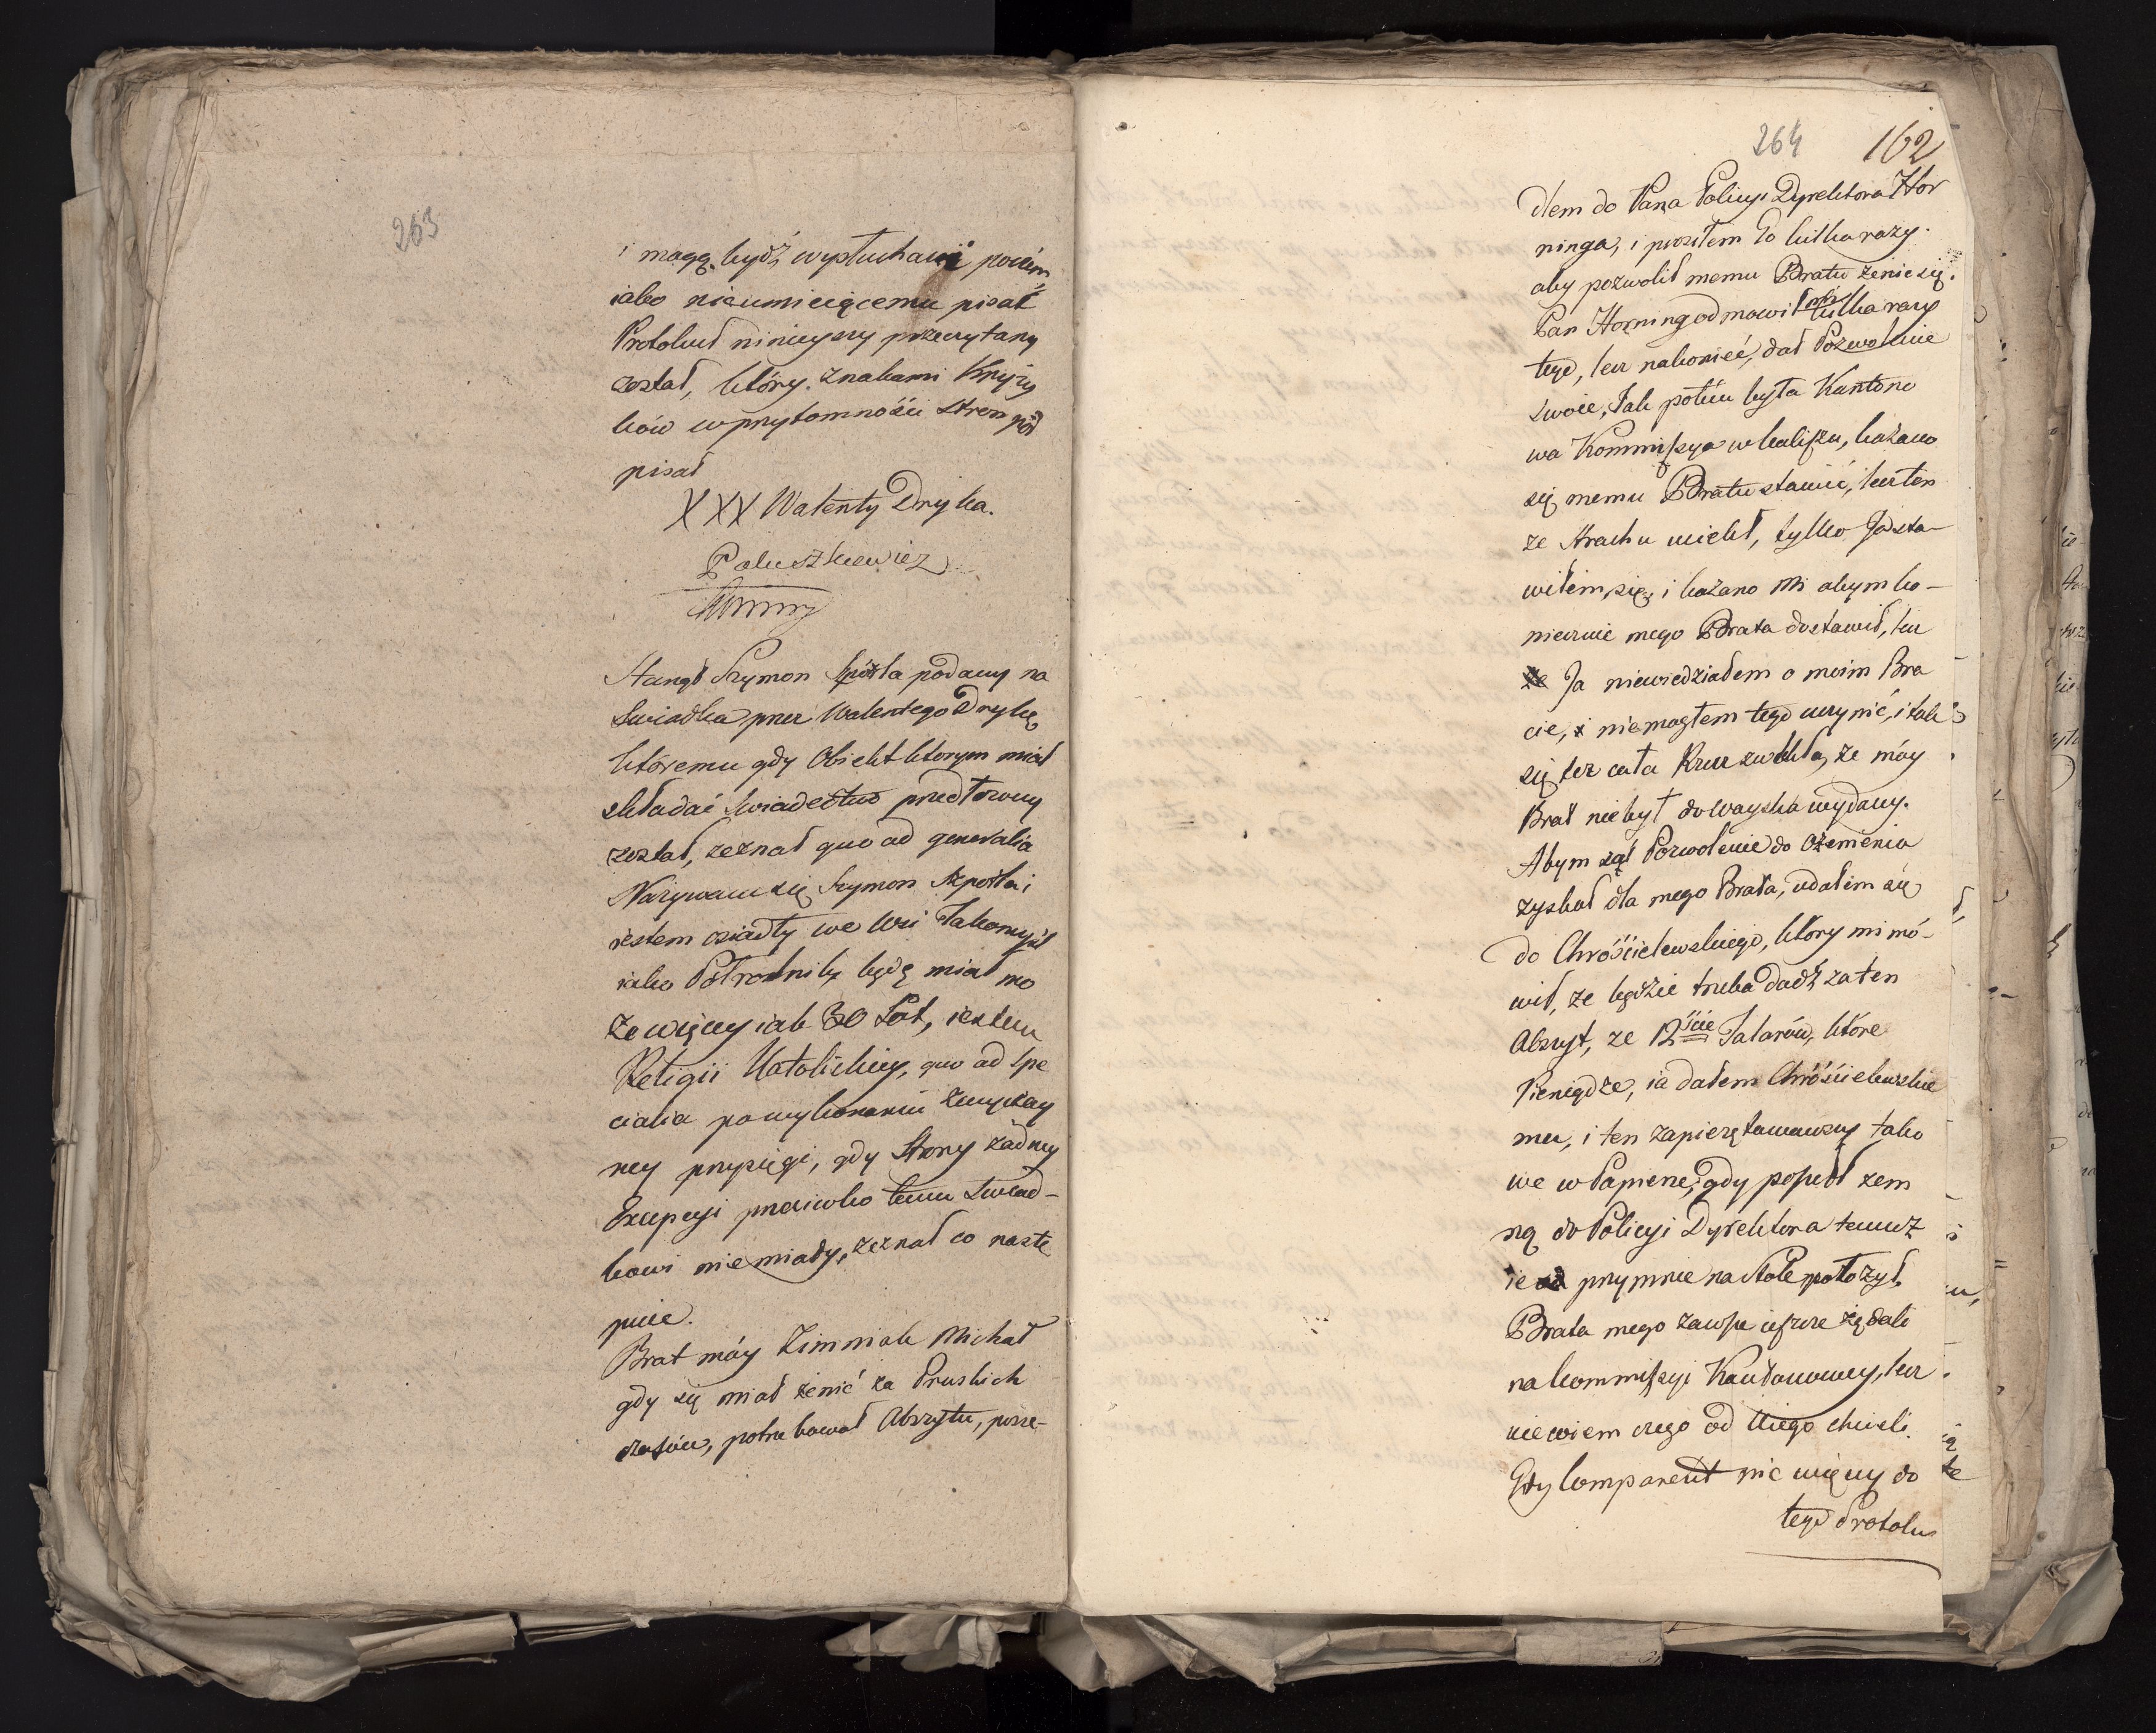 263
i mogą bydź wysłuchani poczém
iako nieumieiącemu pisać
Protokuł ninieyszy przeczytany
został, który znakami Krzyży
ków w przytomności Stron pod
pisał
XXX Walenty Dryka.
Paluszkiewicz
Stanął Szymon Szpótła podany na
Swiadka przez Walentego Drykę
któremu gdy Obiekt ktorym miał
składać swiadectwo przedłożony
został, zeznał quo ad generalia
Nazywam się Szymon Szpotła i
iestem osiadły we Wsi Takomyśl
iako Półrolnik, będę miał mo
że więcey iak 30 Lat, iestem
Religii Katolickiey, quo ad spe
cialia po wykonaniu zwyczay
ney przysięgi, gdy Strony żadney
Excepcyi przeciwko temu Swiad-
kowi nie miały, zeznał co nastę
puie.
Brat móy Zimniak Michał
gdy się miał żenić za Pruskich
czasów, potrzebował Abszytu, posze-
264 162
dłem do Pana Policyi Dyrektora Hor
ninga, i prosiłem Go kilka razy
aby pozwolił memu Bratu żenić się.
Pan Horning odmowił mi kilka razy
tego, lecz nakoniec, dał Pozwolenie
swoie, Jak potém była Kantono
wa Kommissya w Kaliszu, kazano
się memu Bratu stawić, lecz ten
ze strachu uciekł, tylko Ja sta-
wiłem się, i kazano mi abym ko-
niecznie mego Brata dostawił, lecz
Ja niewiedziałem o moim Bra
cie, i niemogłem tego uczynić, i tak
się też cała Rzecz zwlekła, że móy
Brat nie był do woyska wydany.
Abym zaś Pozwolenie do Ożenienia
zyskał dla mego Brata, udałem się
do Chróścielewskiego, który mi mó-
wił, ze będzie trzeba dadź za ten
Abszyt, ze 12ście Talarów, które
Pieniądze, ia dałem Chróścielewskie
mu, i ten zapieczętowawszy tako
we w Papierze, gdy poszedł zem
ną do Policyi Dyrektora temuż
ie przymnie na stole położył,
Brata mego zawsze ieszcze żądali
na Kommissyi Kantonowey, lecz
niewiem czego od niego chcieli.
Gdy Comparent nic więcey do
tego Protoku